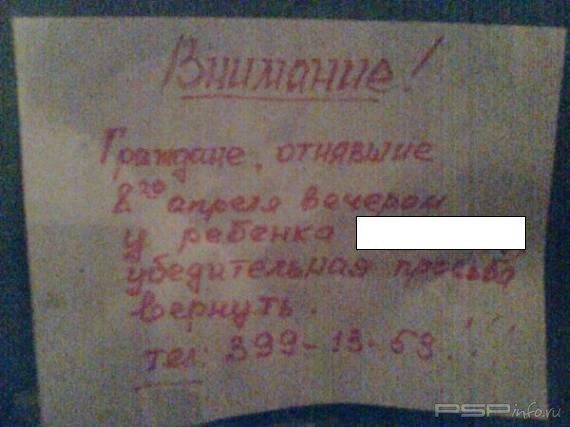 Внимание!
Граждане, отнявшие
8го апреля вечером
у ребенка
убедительная просьба
вернуть.
тел: 399-13-59
PSPinfo.ru